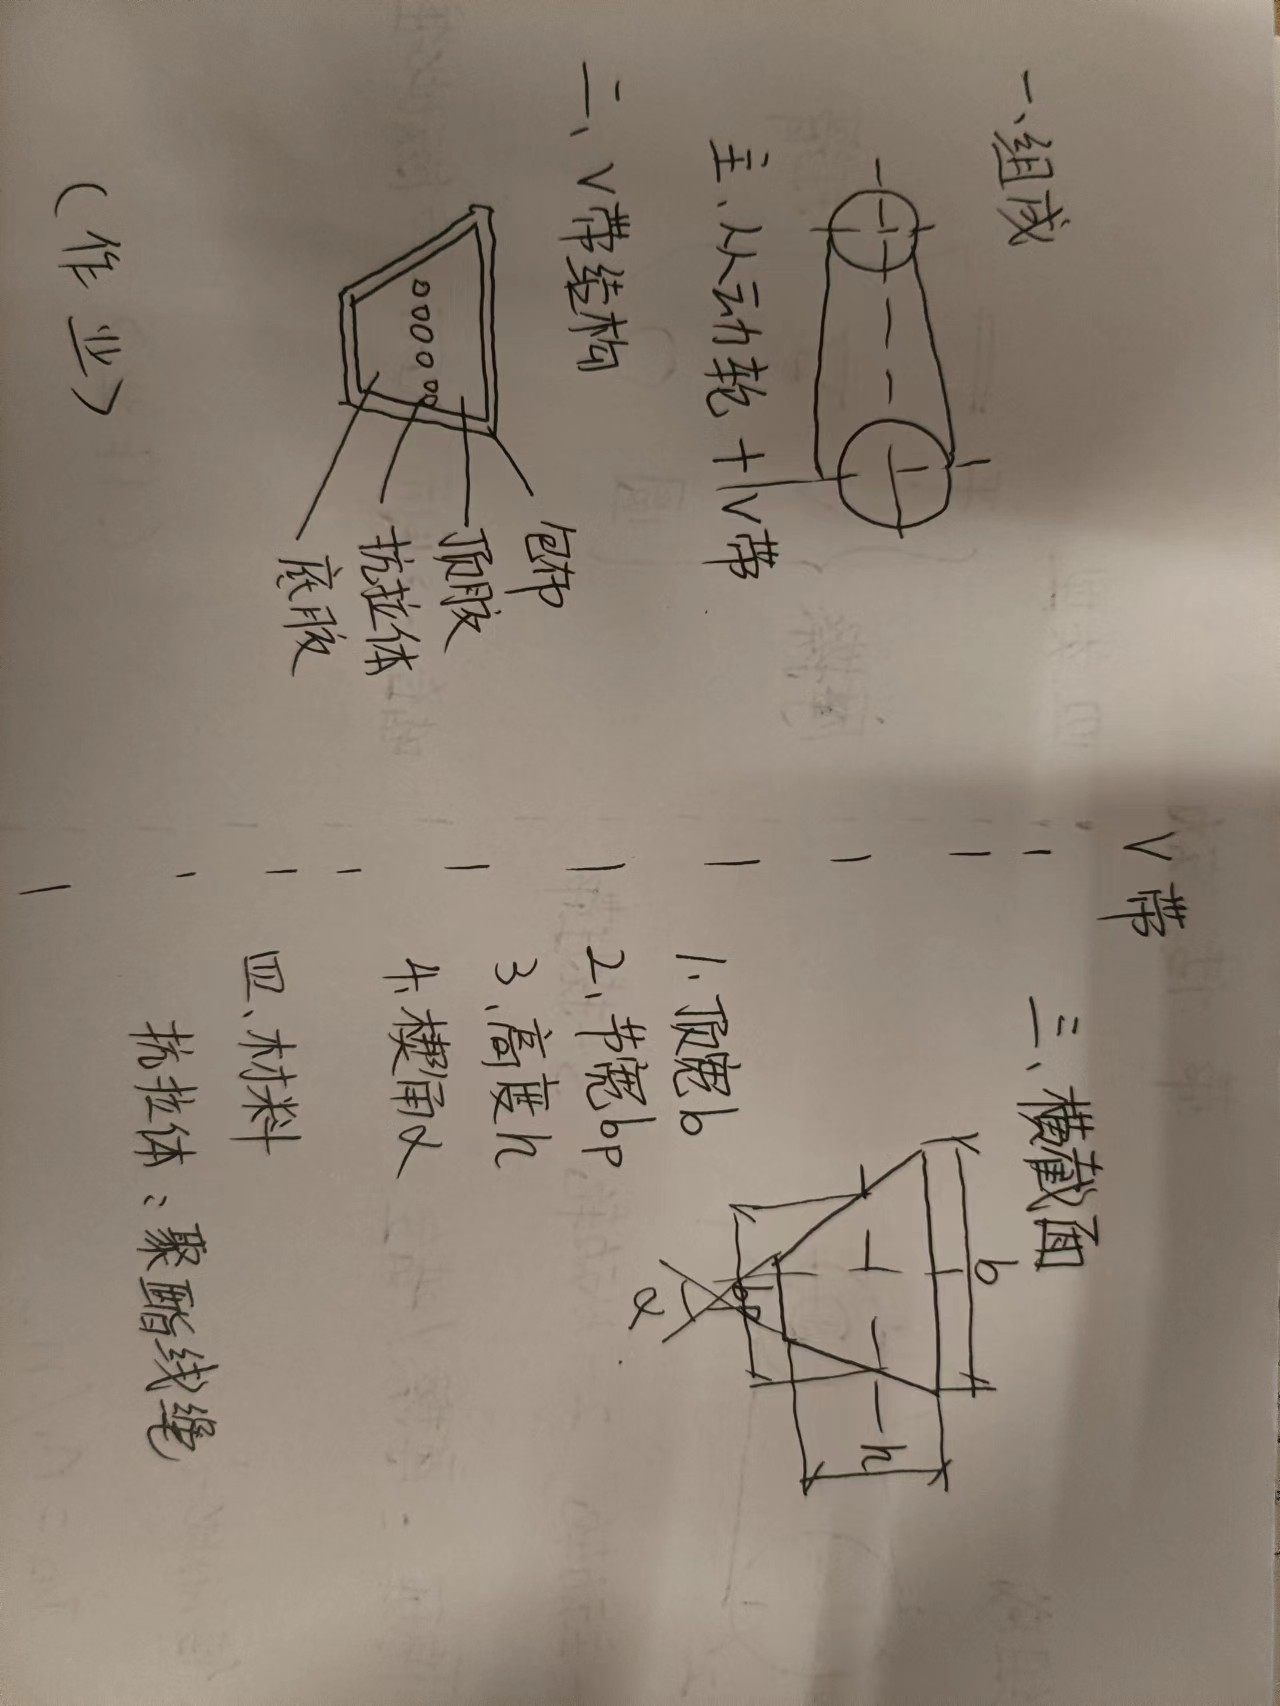 V带
一、组成
主、从动轮+V带
二、V带结构
包布
顶胶
抗拉体
底胶
(作业)
三、横截面
b
h
bp
α
1、顶宽b
2、节宽bp
3、高度h
4、楔角α
四、材料
抗拉体:聚酯线绳